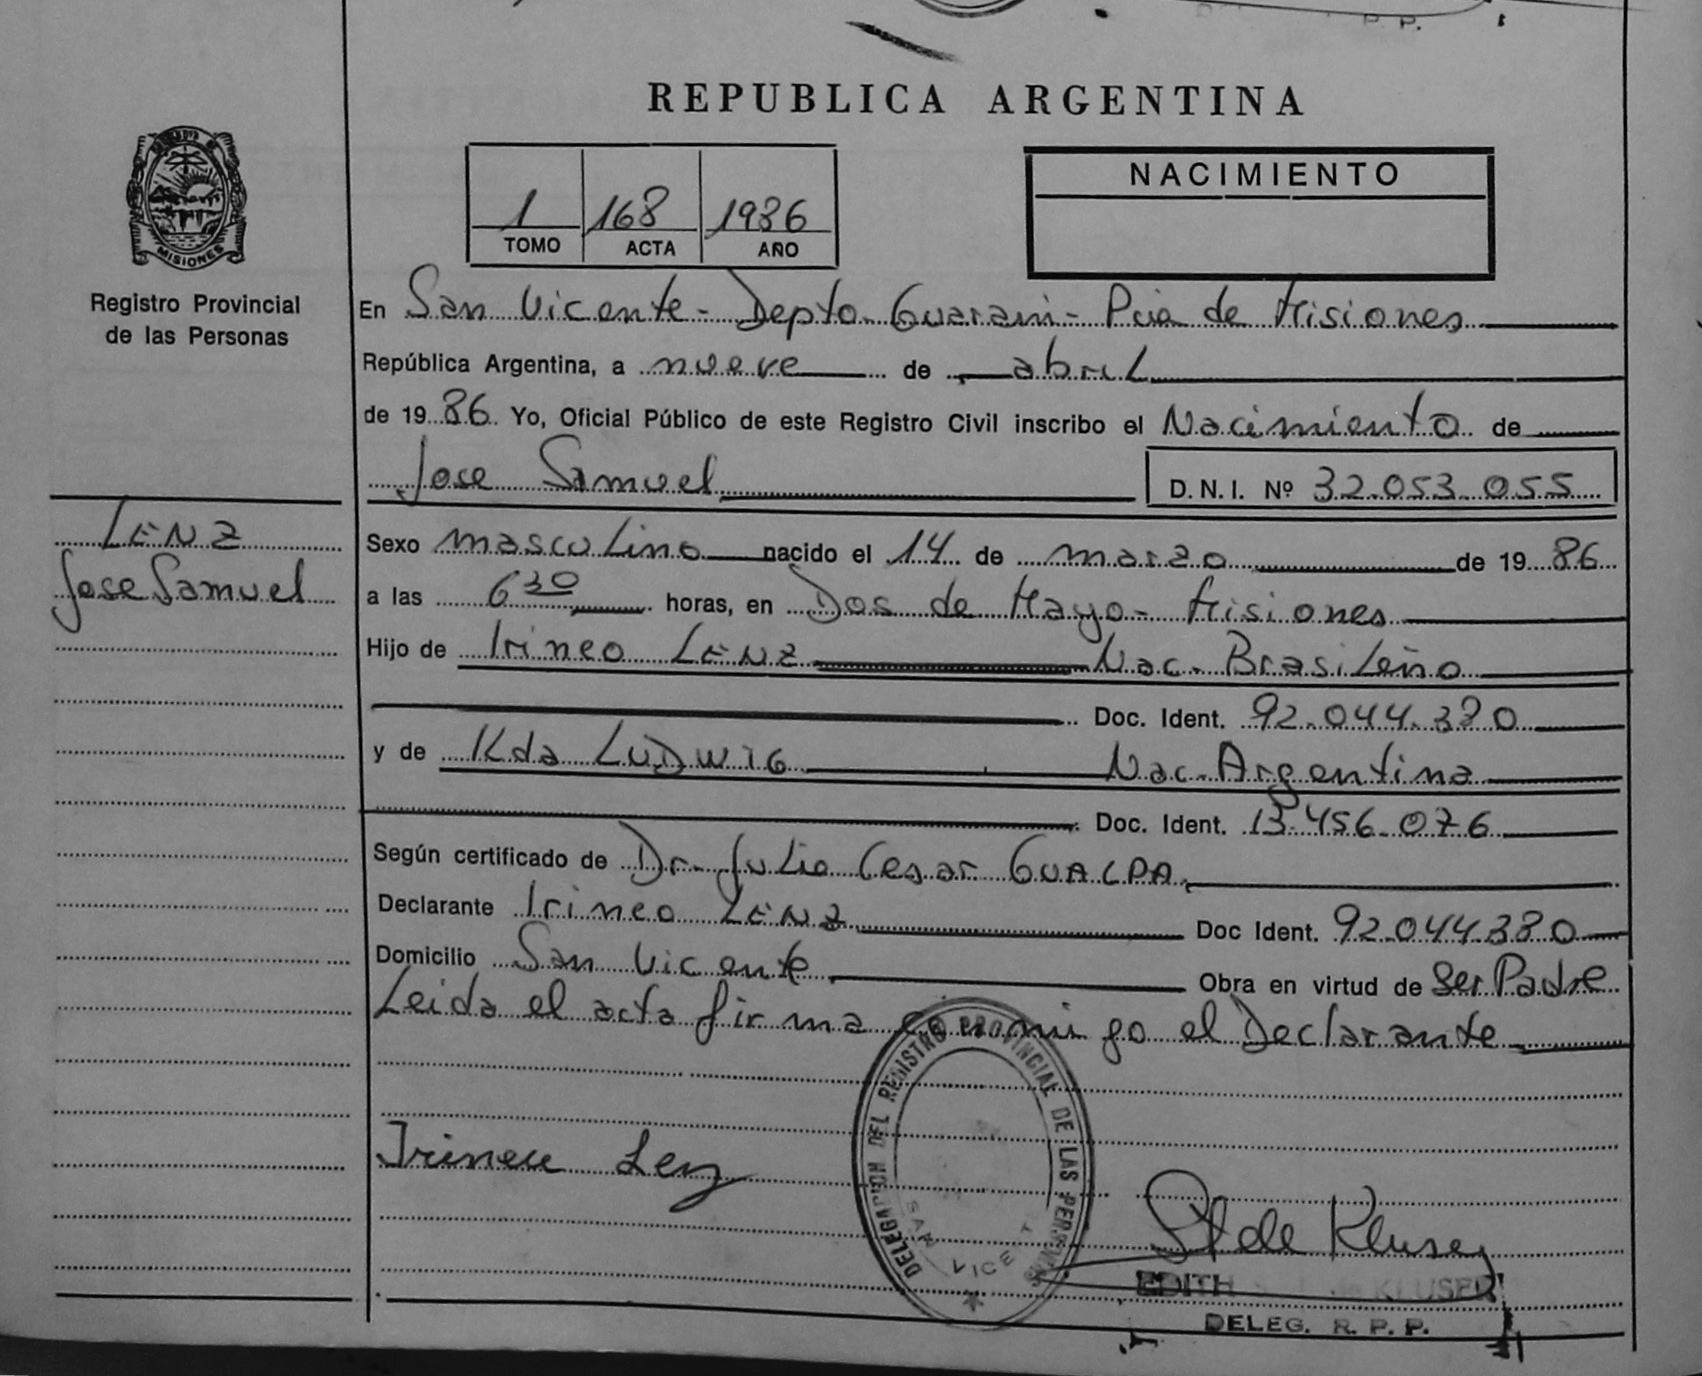 P. P.
REPUBLICA ARGENTINA
MISIONES
Registro Provincial
de las Personas
1 168 1986
TOMO ACTA AÑO
NACIMIENTO
En San Vicente - Depto Guarani - Pcia de Misiones
República Argentina, a nueve de abril
de 19 86 Yo, Oficial Público de este Registro Civil inscribo el Nacimiento de
Jose Samuel D.N.I. Nº 32.053.055
LENZ
Jose Samuel
Sexo masculino nacido el 14 de marzo de 19 86
a las 6 30 horas, en Dos de Mayo - Misiones
Hijo de Irineo LENZ Nac. Brasileño
Doc. Ident. 92.044.380
y de Ilda LUDWIG Nac. Argentina
Doc. Ident. 13.456.076
Según certificado de Dr. Julio Cesar GUALPA
Declarante Irineo LENZ Doc Ident. 92.044.380
Domicilio San Vicente Obra en virtud de Ser Padre
Leida el acta firma conmigo el Declarante
DELEGACION DEL REGISTRO PROVINCIAL DE LAS PERSONAS
SAN VICENTE
Irineu Lenz
St de Kluser
EDITH S. de KLUSER
DELEG. R. P. P.